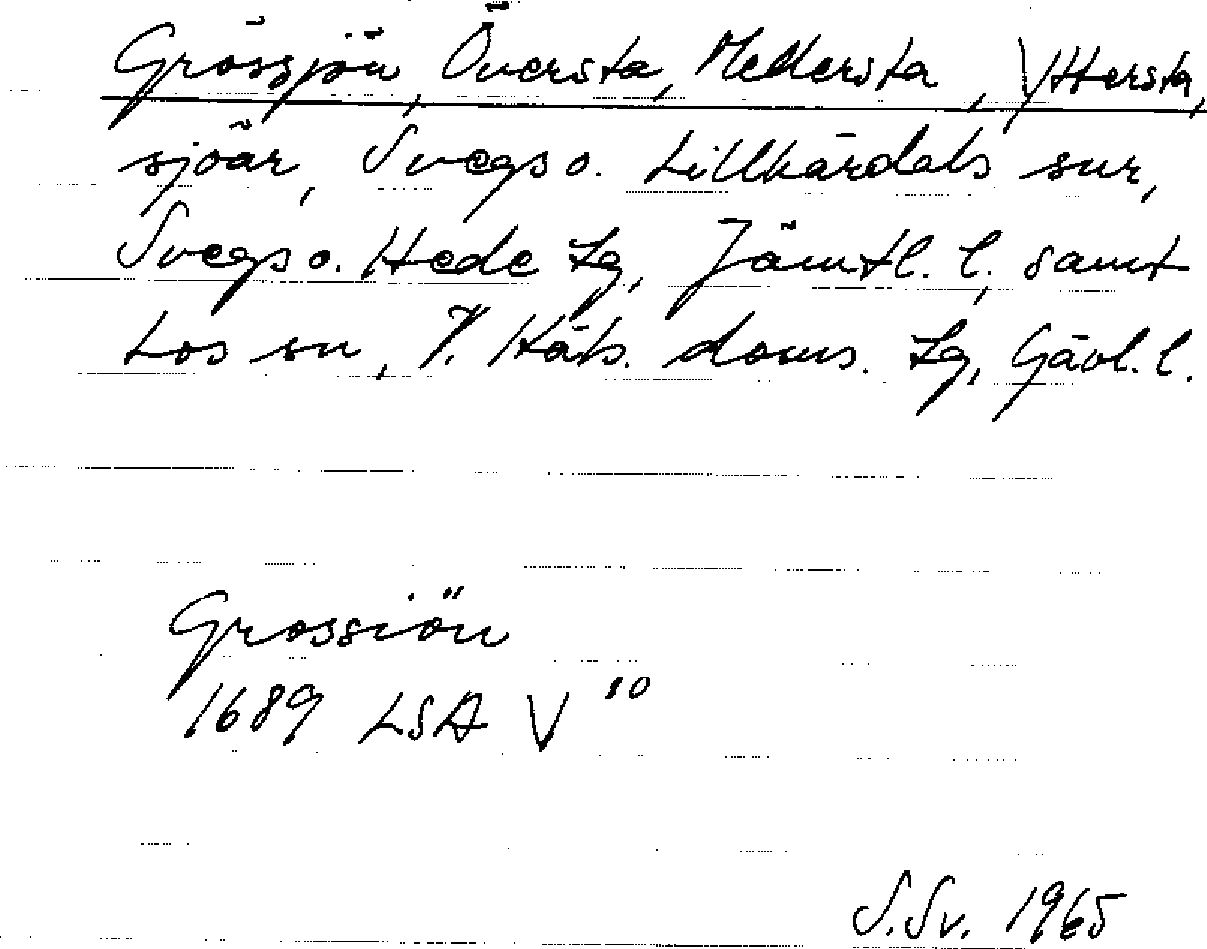 Grössjön, Översta, Mellersta, Yttersta,
sjöar, Svegs o. Lillhärdals snr,
Svegs o. Hede tg, Jämtl. l., samt
Los sn, V. Häls. doms. tg, Gävl. l.
Grossiön
1689 LSA V 10
S.Sv. 1965